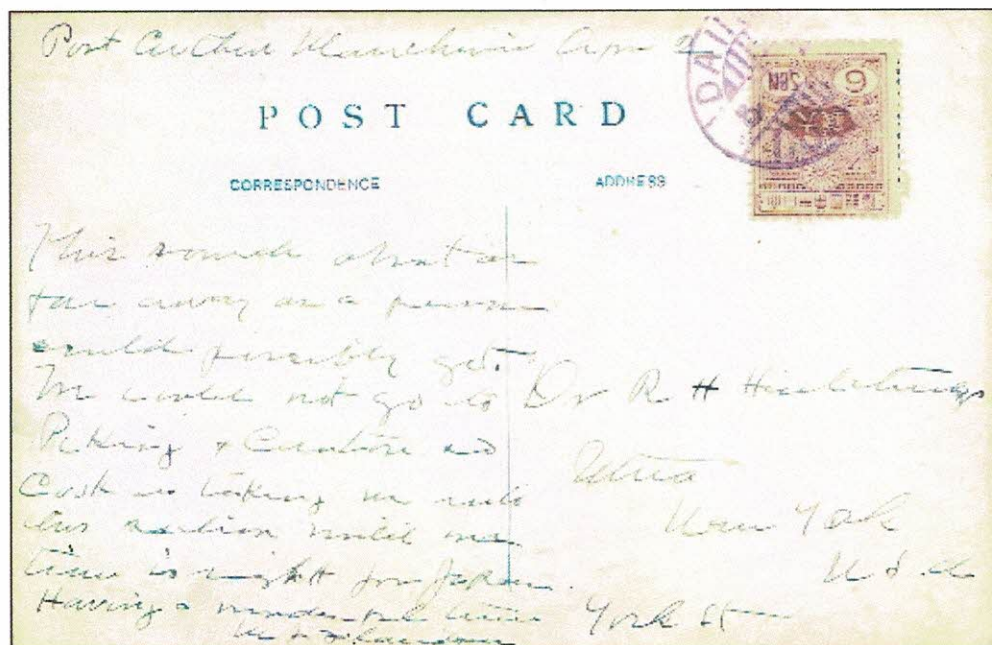 Port Arthur Manchuria Apr 2
POST CARD
CORRESPONDENCE
ADDRESS
DAI
6 SEN
This sounds about as
far away as a person
could possibly get.
We could not go to
Peking & Canton so
Cook is taking us
this section until our
time is right for Japan.
Having a wonderful time
Dr R H
Utica
New York
U S A
York St